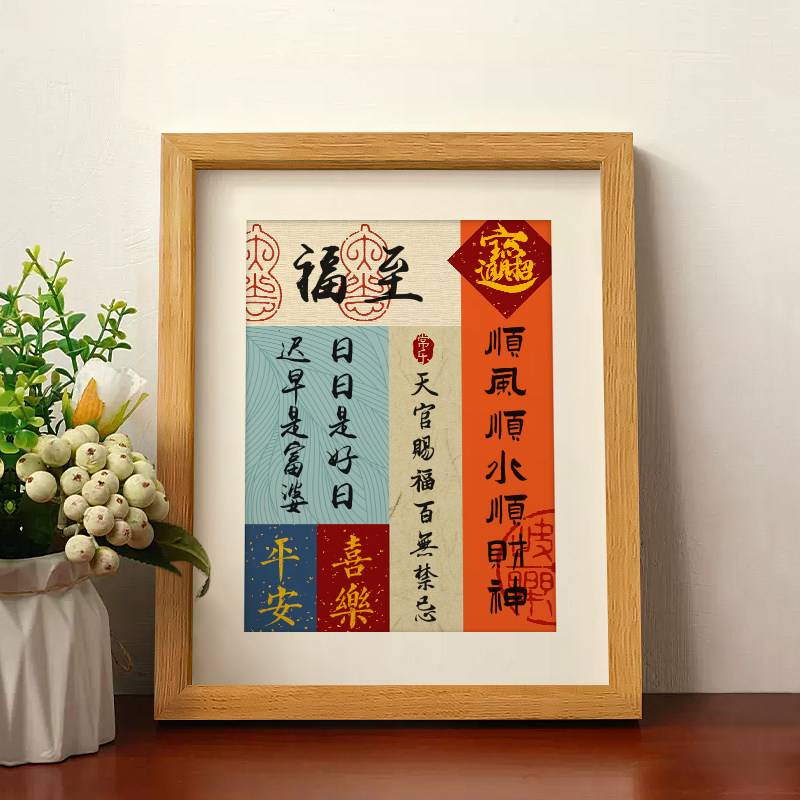 福至
招財進寶
順風順水順財神
常乐
天官賜福百無禁忌
日日是好日
迟早是富婆
喜樂
平安